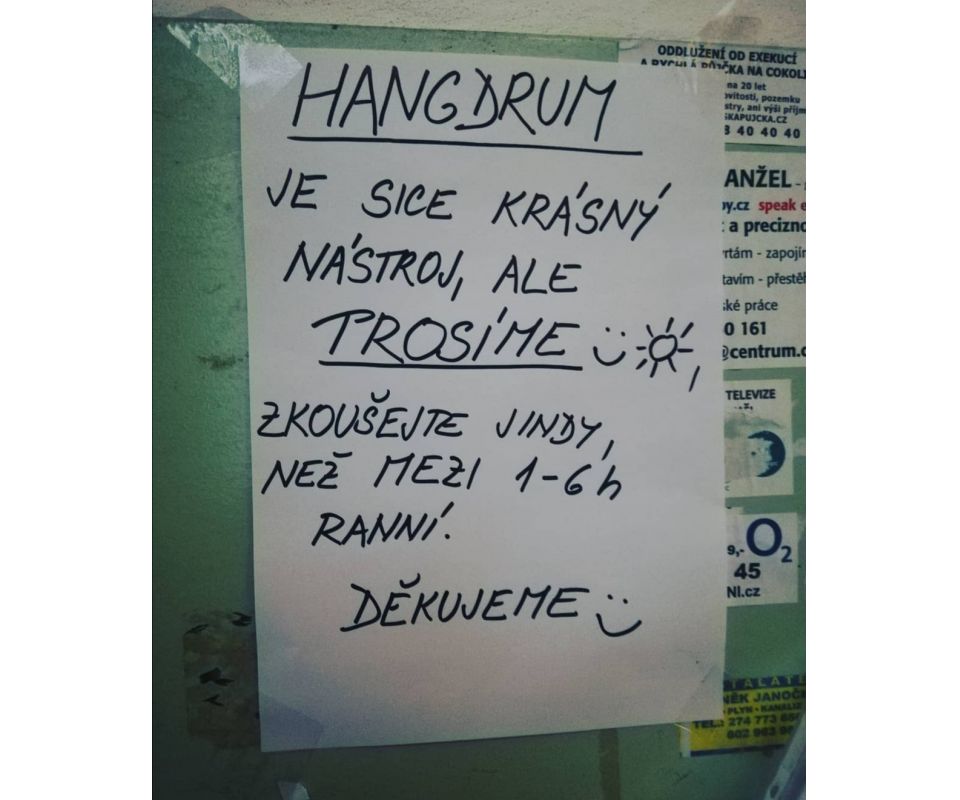 HANGDRUM
JE SICE KRÁSNÝ
NÁSTROJ, ALE
PROSÍME
ZKOUŠEJTE JINDY,
NEŽ MEZI 1-6 h
RANNÍ.
DĚKUJEME
ODDLUŽENÍ OD EXEKUCÍ
A RYCHLÁ PŮJČKA NA COKOLI
na 20 let
pozemku
ani výši příjm
40 40 40
ANŽEL -
by.cz speak e
a precizno
- zapojím
- přestěh
ské práce
0 161
@centrum.c
TELEVIZE
9,- O2
45
NI.cz
TALATÉ
NĚK JANOČ
- PLYN - KANALIZ
TEL.: 274 773 656
602 963